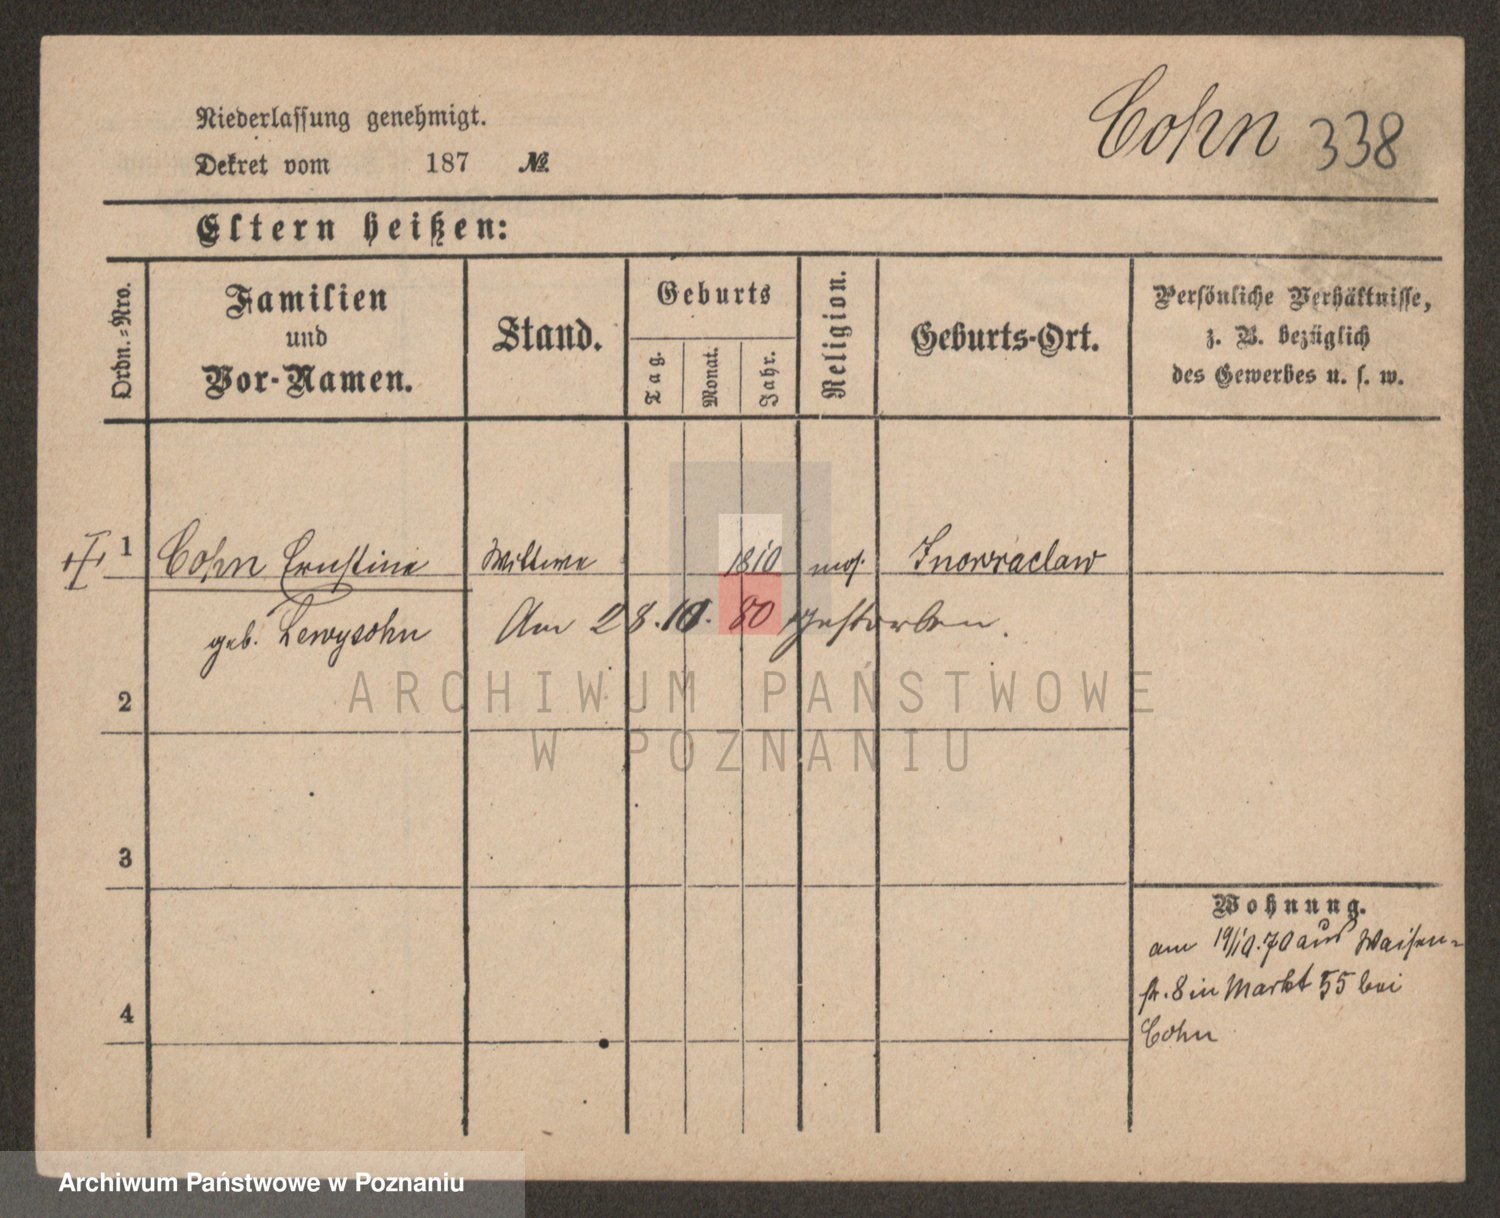 Cohn 338
Niederlassung genehmigt.
Dekret vom 187 №
Eltern heißen:
Ordn.-Nro.
Familien
und
Vor-Namen.
Stand.
Geburts
Tag.
Monat.
Jahr.
Religion.
Geburts-Ort.
Persönliche Verhältnisse,
z. B. bezüglich
des Gewerbes u. s. w.
1 Cohn Ernstine Wittwe 1810 mos. Inowraclaw
geb. Lewysohn Am 28.10.80 gestorben.
2
3
4
Wohnung.
am 19/10.70 aus Waisen-
str. 8 in Markt 55 bei
Cohn
ARCHIWUM PAŃSTWOWE
W POZNANIU
Archiwum Państwowe w Poznaniu